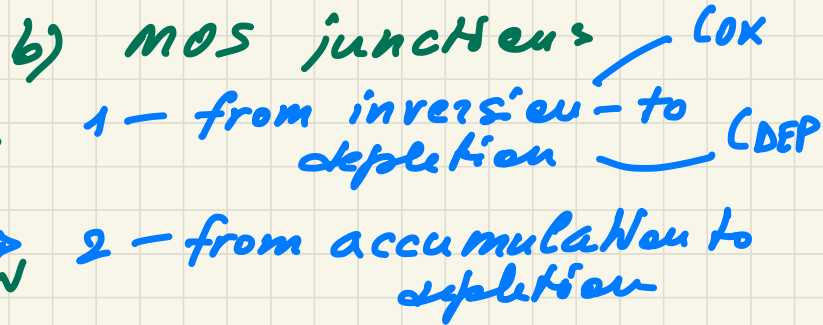 b) MOS junctions
COX
1 – from inversion – to
depletion
CDEP
2 – from accumulation to
depletion